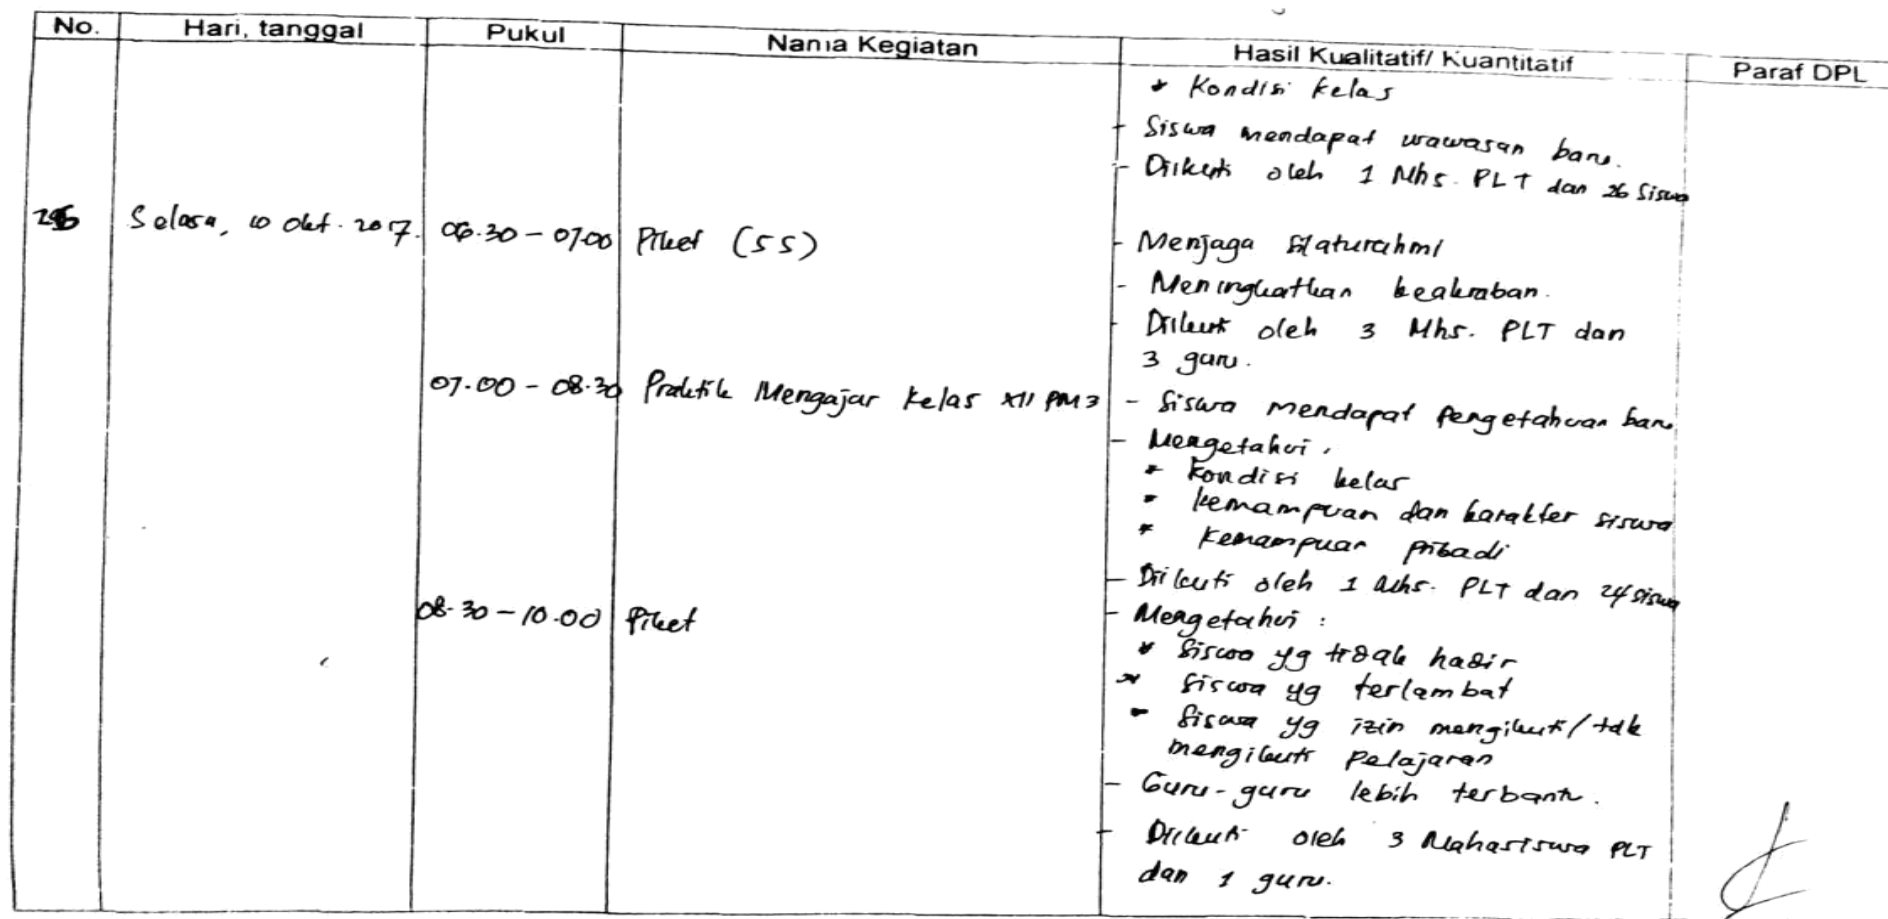 No. Hari, tanggal Pukul Nama Kegiatan Hasil Kualitatif/ Kuantitatif Paraf DPL
* Kondisi kelas
- Siswa mendapat wawasan baru.
- Diikuti oleh 1 Mhs. PLT dan 26 Siswa
Selasa, 10 Okt. 2017. 06.30 - 07.00 Piket (5S) - Menjaga silaturahmi
- Meningkatkan keakraban.
- Diikuti oleh 3 Mhs. PLT dan
3 guru.
07.00 - 08.30 Praktik Mengajar Kelas XII PM3 - Siswa mendapat pengetahuan baru
- Mengetahui :
* Kondisi kelas
* kemampuan dan karakter siswa
* Kemampuan pribadi
- Diikuti oleh 1 Mhs. PLT dan 24 siswa
08.30 - 10.00 Piket - Mengetahui :
* Siswa yg tidak hadir
* Siswa yg terlambat
* Siswa yg izin mengikuti/tdk
mengikuti Pelajaran
- Guru-guru lebih terbantu.
- Diikuti oleh 3 Mahasiswa PLT
dan 1 guru.